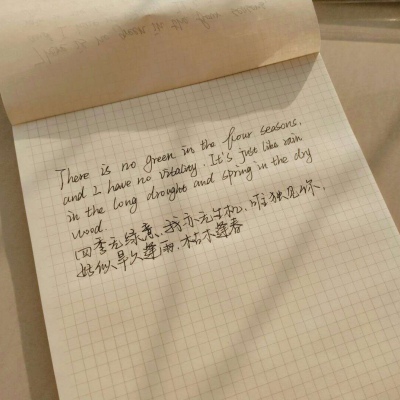 There is no green in the four seasons,
and I have no vitality. It's just like rain
in the long drought and spring in the dry
wood.
四季无绿意,我亦无生机,唯独见你,
好似旱久逢雨,枯木逢春